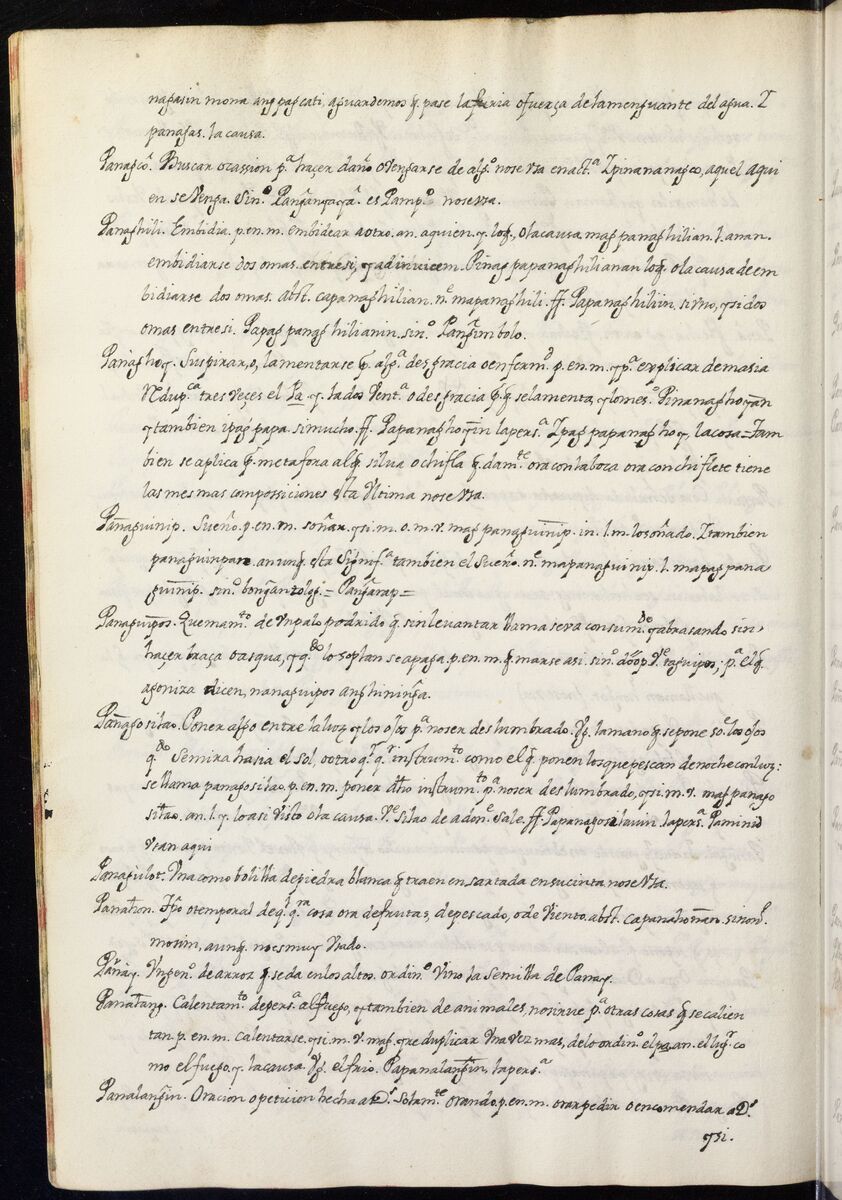 nagasin mona ang pagcati, aguardemos q̃. pase la furia o fuerça de la menguante del agua. I
panagas. la causa.
Panagco. Buscar ocassion p.ª haçer daño o Vengarse de alg.º no se Vsa en act.ª Ipinananagco, aquel aqui
en se Venga. Sin.º es Pamp.º no se vsa.
Panaghili. Embidia. p. en. m. embidear a otro. an. a quien. y log., o la causa. mag panaghilian. l. anan.
embidiarse dos o mas. entre si, y ad invicem. Pinag papanaghilianan lo q̃. o la causa de em
bidiarse dos o mas. abst. capanaghilian. n.º mapanaghili. ff. Papanaghiliin, si vno, y si dos
o mas entre si. Papag panaghilianin. sin.º Pangimbolo.
Panaghoy. Suspirar, o, lamentarse q̃. alg.ª desgracia o enferm.º p. en. m. y p.ª explicar demasia
Ndup.ca tres veçes el Pa. y. la dos Vent.ª o desgracia p. q̃ se lamenta, y lo mes.º Pinanaghoyan
y tambien ipag papa. si mucho. ff. Papanaghoyin la pers.ª Ipag papanaghoy la cosa = Tam
bien se aplica p. metafora al q̃. silva o chifla q̃. dam.te ora con la boca ora con chiflete tiene
las mesmas compossiciones esta Vltima no se Vsa.
Panaguinip. Sueño. p. en. m. soñar. y si. m. o. m. v. mag panaguinip. in. l. m. lo soñado. I tambien
panaguinpan. an unq̃ esta signif.ª tambien el Sueño. n.º mapanaguinip. l. mapag pana
guinip. sin.º bongantolog. = Pangarap =
Panaguipos. Quemam.to de Vn palo podrido q̃. sin levantar llama se va consum.do y abrasando sin
haçer braça o asqua, y q.do lo soplan se apaga. p. en. m. q̃ marse asi. sin.º V.e taguipos; p.ª el q̃.
agoniza dicen, nanaguipos ang hininga.
Panagosilao. Poner algo entre la luz y los ojos p.ª no ser deslumbrado. Vg. la mano q̃ se pone so.e los ojos
q.do Se mira hasia el sol, o otro q.l q.r instrum.to como el q̃ ponen los que pescan de noche con luz:
se llama panagosilao. p. en. m. poner dho instrum.to p.ª no ser deslumbrado, y si. m. v. mag panago
silao. an. l. y. lo asi Visto o la causa. V.e silao de adon.e sale. ff. Papanagosilauin. la pers.ª Paminid
vsan aqui
Panagulot. Vna como bolilla de piedra blanca q̃ traen ensartada en su cinta no se Vsa.
Panahon. Tpo o temporal de q.l q.ra cosa ora de frutas, de pescado, o de Viento. abst. capanahonan. sinon.
mosim, aunq̃ no es muy Vsado.
Panay. Vn gen.º de arroz q̃ se da en los altos. ordin.º Vino la Semilla de Panay.
Panalang. Calentam.to de pers.ª al fuego, y tambien de animales, no sirve p.ª otras cosas q̃ se calien
tan. p. en. m. calentarse. y si. m. v. mag. y reduplicar Vna vez mas, de lo ordin.º el pa. an. el lug.r co
mo el fuego. y. la causa. Vg. el frio. Papanalangin, la pers.ª
Panalangin. Oracion o peticion hecha a D.s Solam.te orando. p. en. m. orar pedir o encomendar a D.s
y si.